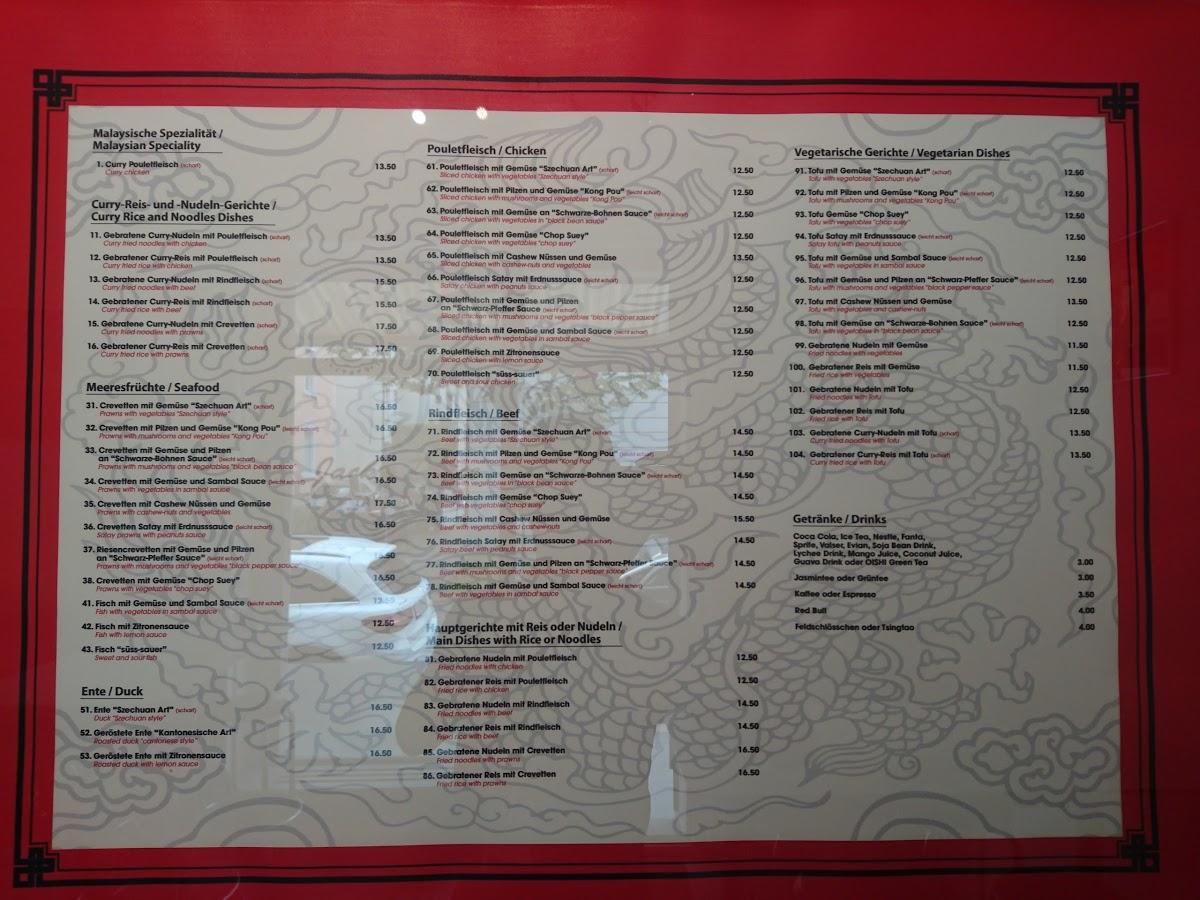 Malaysische Spezialität /
Malaysian Speciality
1. Curry Pouletfleisch (scharf) 13.50
Curry chicken
Curry-Reis- und -Nudeln-Gerichte /
Curry Rice and Noodles Dishes
11. Gebratene Curry-Nudeln mit Pouletfleisch (scharf) 13.50
Curry fried noodles with chicken
12. Gebratener Curry-Reis mit Pouletfleisch (scharf) 13.50
Curry fried rice with chicken
13. Gebratene Curry-Nudeln mit Rindfleisch (scharf) 15.50
Curry fried noodles with beef
14. Gebratener Curry-Reis mit Rindfleisch (scharf) 15.50
Curry fried rice with beef
15. Gebratene Curry-Nudeln mit Crevetten (scharf) 17.50
Curry fried noodles with prawns
16. Gebratener Curry-Reis mit Crevetten (scharf) 17.50
Curry fried rice with prawns
Meeresfrüchte / Seafood
31. Crevetten mit Gemüse "Szechuan Art" (scharf) 16.50
Prawns with vegetables "Szechuan style"
32. Crevetten mit Pilzen und Gemüse "Kong Pou" (leicht scharf) 16.50
Prawns with mushrooms and vegetables "Kong Pou"
33. Crevetten mit Gemüse und Pilzen
an "Schwarze-Bohnen Sauce" (leicht scharf) 16.50
Prawns with mushrooms and vegetables "black bean sauce"
34. Crevetten mit Gemüse und Sambal Sauce (leicht scharf) 16.50
Prawns with vegetables in sambal sauce
35. Crevetten mit Cashew Nüssen und Gemüse 17.50
Prawns with cashew-nuts and vegetables
36. Crevetten Satay mit Erdnusssauce (leicht scharf) 16.50
Satay prawns with peanuts sauce
37. Riesencrevetten mit Gemüse und Pilzen
an "Schwarz-Pfeffer Sauce" (leicht scharf)
Prawns with mushrooms and vegetables "black pepper sauce"
38. Crevetten mit Gemüse "Chop Suey" 16.50
Prawns with vegetables "chop suey"
41. Fisch mit Gemüse und Sambal Sauce (leicht scharf) 12.50
Fish with vegetables in sambal sauce
42. Fisch mit Zitronensauce 12.50
Fish with lemon sauce
43. Fisch "süss-sauer" 12.50
Sweet and sour fish
Ente / Duck
51. Ente "Szechuan Art" (scharf) 16.50
Duck "Szechuan style"
52. Geröstete Ente "Kantonesische Art" 16.50
Roasted duck "cantonese style"
53. Geröstete Ente mit Zitronensauce 16.50
Roasted duck with lemon sauce
Pouletfleisch / Chicken
61. Pouletfleisch mit Gemüse "Szechuan Art" (scharf) 12.50
Sliced chicken with vegetables "Szechuan style"
62. Pouletfleisch mit Pilzen und Gemüse "Kong Pou" (leicht scharf) 12.50
Sliced chicken with mushrooms and vegetables "Kong Pou"
63. Pouletfleisch mit Gemüse an "Schwarze-Bohnen Sauce" (leicht scharf) 12.50
Sliced chicken with vegetables in "black bean sauce"
64. Pouletfleisch mit Gemüse "Chop Suey" 12.50
Sliced chicken with vegetables "chop suey"
65. Pouletfleisch mit Cashew Nüssen und Gemüse 13.50
Sliced chicken with cashew-nuts and vegetables
66. Pouletfleisch Satay mit Erdnusssauce (leicht scharf) 12.50
Satay chicken with peanuts sauce
67. Pouletfleisch mit Gemüse und Pilzen
an "Schwarz-Pfeffer Sauce" (leicht scharf) 12.50
Sliced chicken with mushrooms and vegetables "black pepper sauce"
68. Pouletfleisch mit Gemüse und Sambal Sauce (leicht scharf) 12.50
Sliced chicken with vegetables in sambal sauce
69. Pouletfleisch mit Zitronensauce 12.50
Sliced chicken with lemon sauce
70. Pouletfleisch "süss-sauer" 12.50
Sweet and sour chicken
Rindfleisch / Beef
71. Rindfleisch mit Gemüse "Szechuan Art" (scharf) 14.50
Beef with vegetables "Szechuan style"
72. Rindfleisch mit Pilzen und Gemüse "Kong Pou" (leicht scharf) 14.50
Beef with mushrooms and vegetables "Kong Pou"
73. Rindfleisch mit Gemüse an "Schwarze-Bohnen Sauce" (leicht scharf) 14.50
Beef with vegetables in "black bean sauce"
74. Rindfleisch mit Gemüse "Chop Suey" 14.50
Beef with vegetables "chop suey"
75. Rindfleisch mit Cashew Nüssen und Gemüse 15.50
Beef with vegetables and cashew-nuts
76. Rindfleisch Satay mit Erdnusssauce (leicht scharf) 14.50
Satay beef with peanuts sauce
77. Rindfleisch mit Gemüse und Pilzen an "Schwarz-Pfeffer Sauce" (leicht scharf) 14.50
Beef with mushrooms and vegetables "black pepper sauce"
78. Rindfleisch mit Gemüse und Sambal Sauce (leicht scharf) 14.50
Beef with vegetables in sambal sauce
Hauptgerichte mit Reis oder Nudeln /
Main Dishes with Rice or Noodles
81. Gebratene Nudeln mit Pouletfleisch 12.50
Fried noodles with chicken
82. Gebratener Reis mit Pouletfleisch 12.50
Fried rice with chicken
83. Gebratene Nudeln mit Rindfleisch 14.50
Fried noodles with beef
84. Gebratener Reis mit Rindfleisch 14.50
Fried rice with beef
85. Gebratene Nudeln mit Crevetten 16.50
Fried noodles with prawns
86. Gebratener Reis mit Crevetten 16.50
Fried rice with prawns
Vegetarische Gerichte / Vegetarian Dishes
91. Tofu mit Gemüse "Szechuan Art" (scharf) 12.50
Tofu with vegetables "Szechuan style"
92. Tofu mit Pilzen und Gemüse "Kong Pou" (leicht scharf) 12.50
Tofu with mushrooms and vegetables "Kong Pou"
93. Tofu Gemüse "Chop Suey" 12.50
Tofu with vegetables "chop suey"
94. Tofu Satay mit Erdnusssauce (leicht scharf) 12.50
Satay tofu with peanuts sauce
95. Tofu mit Gemüse und Sambal Sauce (leicht scharf) 12.50
Tofu with vegetables in sambal sauce
96. Tofu mit Gemüse und Pilzen an "Schwarz-Pfeffer Sauce" (leicht scharf) 12.50
Tofu with mushrooms and vegetables "black pepper sauce"
97. Tofu mit Cashew Nüssen und Gemüse 13.50
Tofu with vegetables and cashew-nuts
98. Tofu mit Gemüse an "Schwarze-Bohnen Sauce" (leicht scharf) 12.50
Tofu with vegetables in "black bean sauce"
99. Gebratene Nudeln mit Gemüse 11.50
Fried noodles with vegetables
100. Gebratener Reis mit Gemüse 11.50
Fried rice with vegetables
101. Gebratene Nudeln mit Tofu 12.50
Fried noodles with Tofu
102. Gebratener Reis mit Tofu 12.50
Fried rice with Tofu
103. Gebratene Curry-Nudeln mit Tofu (scharf) 13.50
Curry fried noodles with Tofu
104. Gebratener Curry-Reis mit Tofu (scharf) 13.50
Curry fried rice with Tofu
Getränke / Drinks
Coca Cola, Ice Tea, Nestle, Fanta,
Sprite, Valser, Evian, Soja Bean Drink,
Lychee Drink, Mango Juice, Coconut Juice,
Guava Drink oder OISHI Green Tea 3.00
Jasmintee oder Grüntee 3.00
Kaffee oder Espresso 3.50
Red Bull 4.00
Feldschlösschen oder Tsingtao 4.00